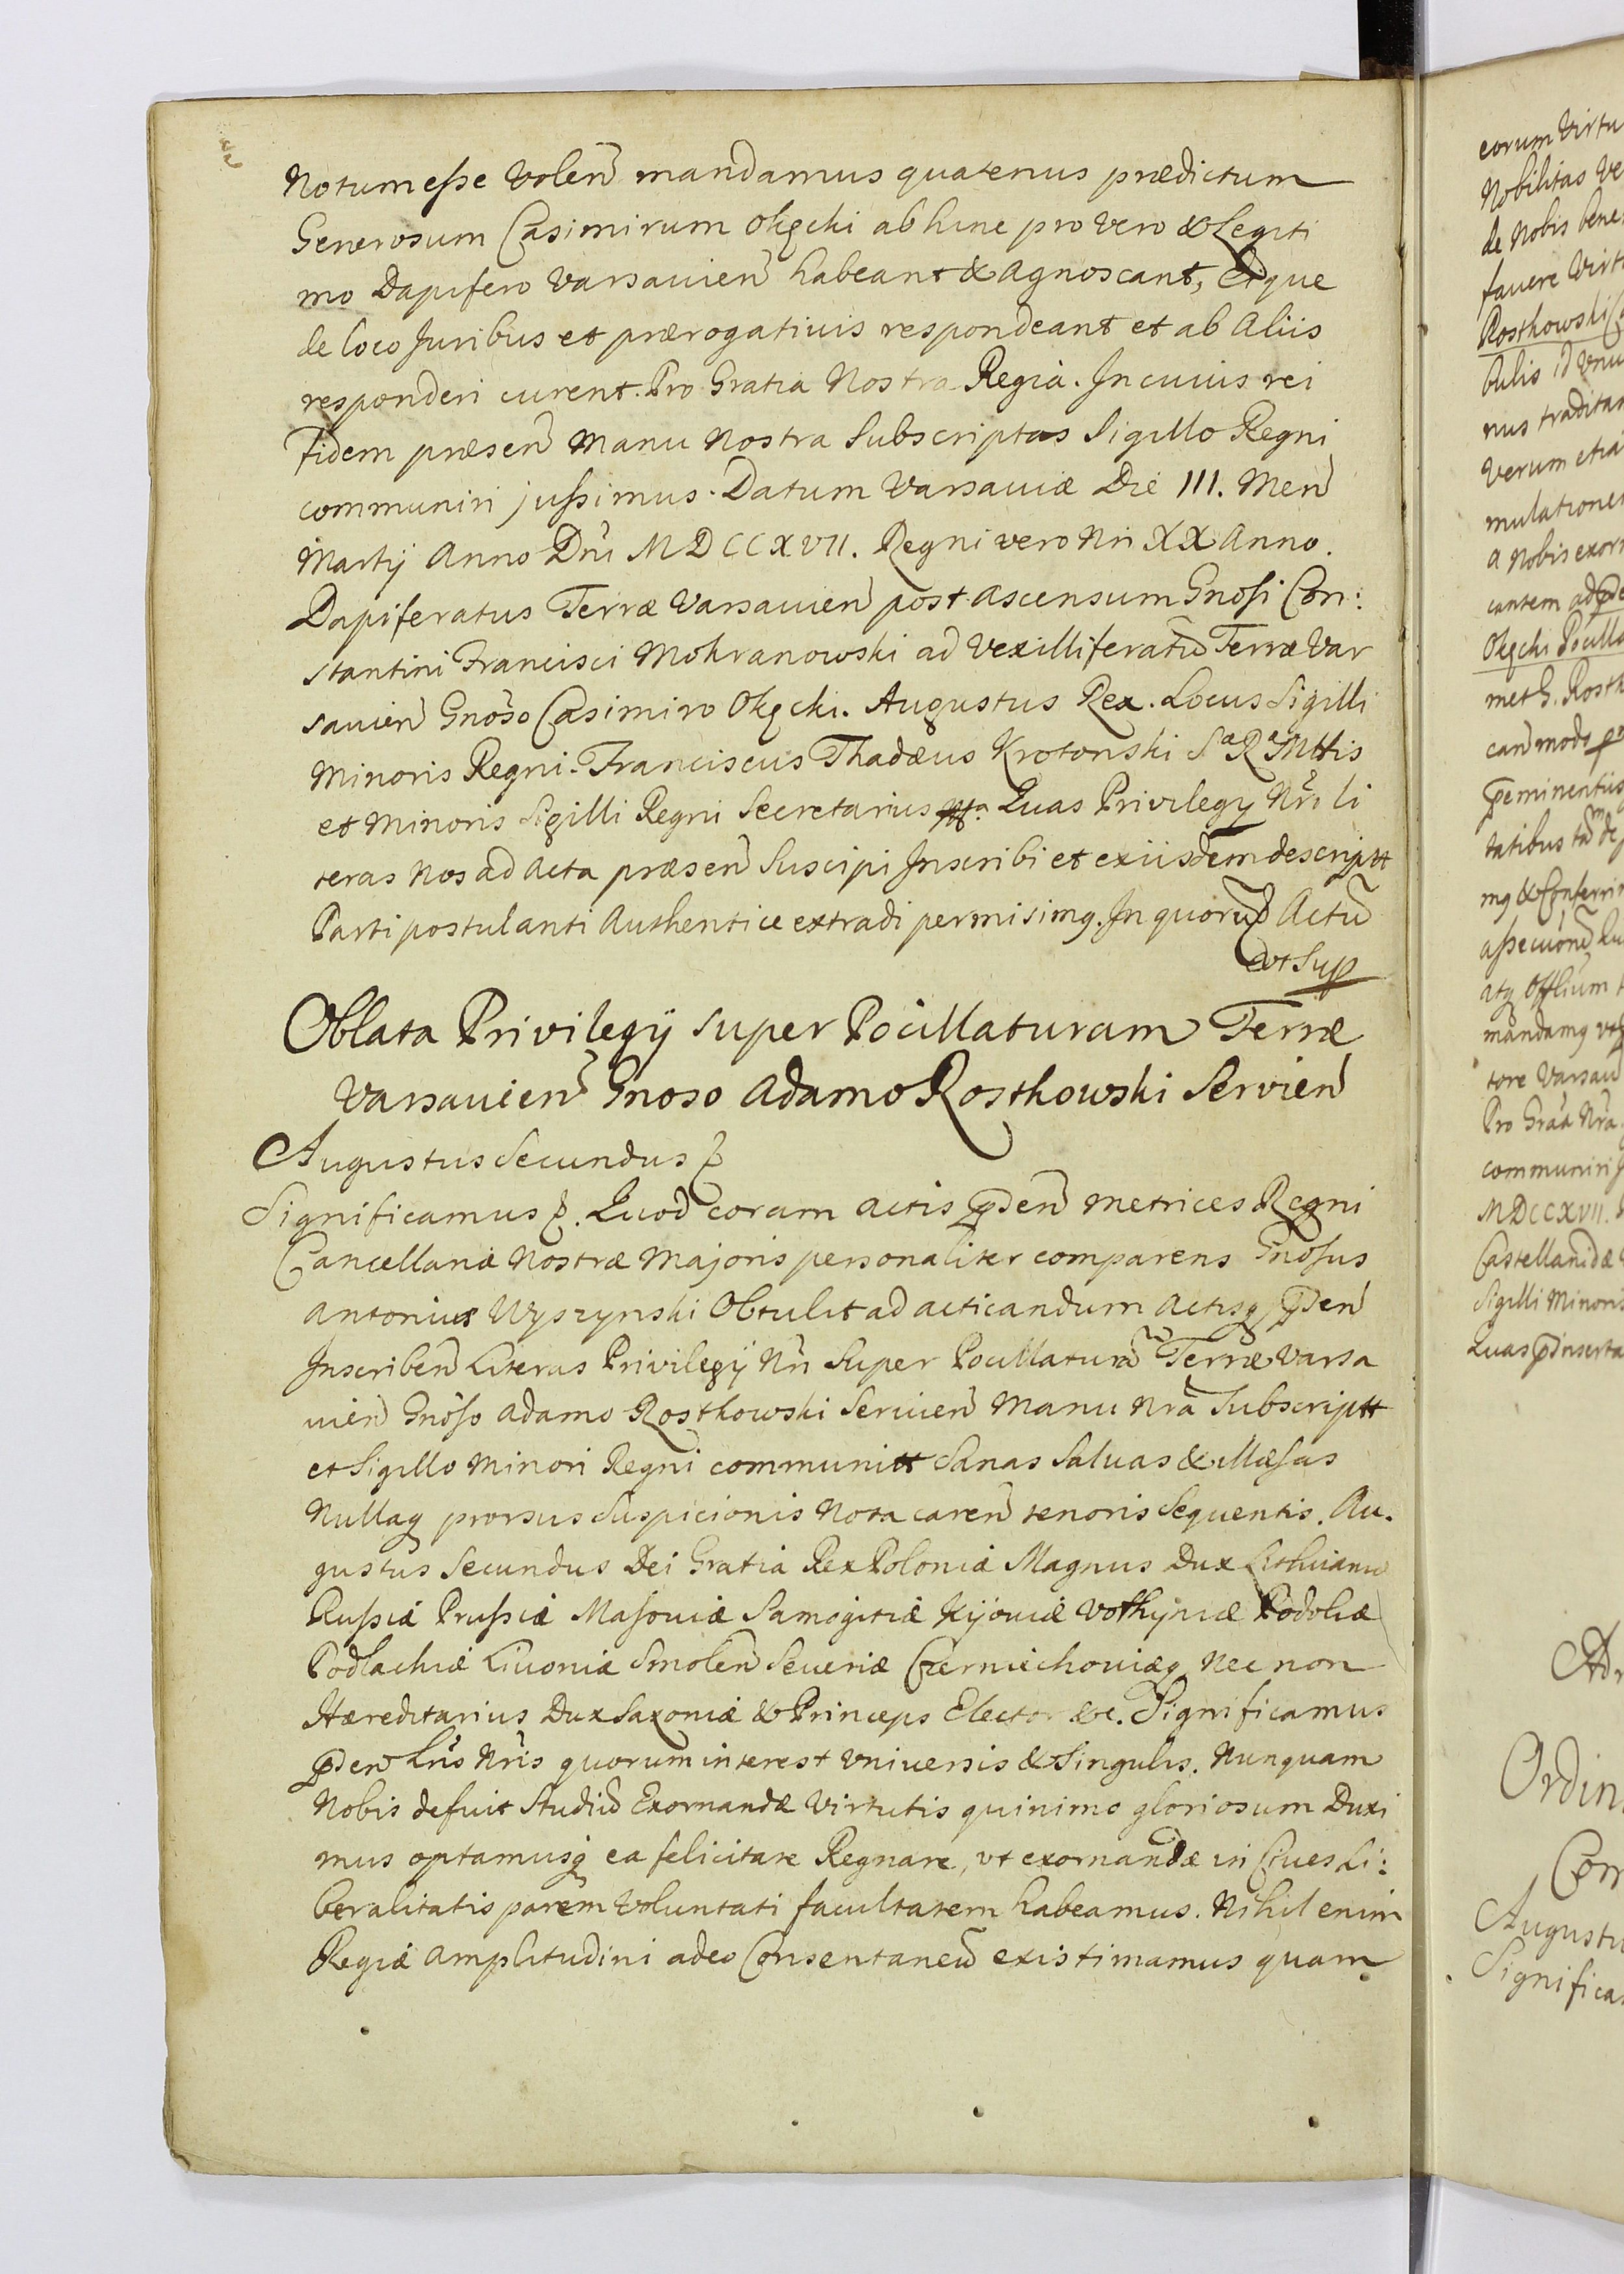 Notum esse Volen mandamus quatenus prædictum
Generosum Casimirum Okęcki ab hinc pro Vero & Legiti
mo Dapifero Varsavien habeant & agnoscant, Eique
de loco Juribus et prærogativis respondeant et ab Aliis
responderi curent. Pro Gratia Nostra Regia. In cuius rei
Fidem præsen Manu Nostra Subscriptas Sigillo Regni
communiri jussimus. Datum Varsaviæ Die III. Men
Martij Anno Dni MDCCXVII. Regni vero Nri XX Anno.
Dapiferatus Terræ Varsavien post ascensum Gnosi Con:
stantini Francisci Mokranowski ad Vexilliferatu Terræ Var
savien Gnoso Casimiro Okęcki. Augustus Rex. Locus Sigilli
Minoris Regni. Franciscus Thadæus Krotonski Sæ Ræ Mttis
et Minoris Sigilli Regni Secretarius mp. Quas Privilegy Nri li
teras Nos ad Acta præsen Suscipi Inscribi et ex iisdem descriptt
Parti postulanti Authentice extradi permisimq. In quoru Actu
ut Sup
Oblata Privilegij super Pocillaturam Terræ
Varsavien Gnoso Adamo Rostkowski Servien
Augustus Secundus
Significamus. Quod coram actis pden Metrices Regni
Cancellariæ Nostræ Majoris personaliter comparens Gnosus
Antonius Wyszynski Obtulit ad acticandum Actisq pden
Inscriben Literas Privilegij Nri Super Pocillatura Terræ Varsa
vien Gnoso Adamo Rostkowski Servien Manu Nra Subscriptt
et Sigillo Minori Regni communitt Sanas Salvas & illæsas
Nullaq prorsus Suspicionis Nota caren tenoris Sequentis. Au.
gustus Secundus Dei Gratia Rex Poloniæ Magnus Dux Lithuaniæ
Russiæ Prussiæ Masoviæ Samogitiæ Kijoviæ Volhyniæ Podoliæ
Podlachiæ Livoniæ Smolen Severiæ Czerniechoviæq Nec non
Hæreditarius Dux Saxoniæ & Princeps Elector &c. Significamus
pden Lris Nris quorum interest Vniversis & Singulis. Nunquam
Nobis defuit Studiu Exornandæ Virtutis quinimo gloriosum Duxi
mus optamusq ea felicitate Regnare, vt exornandæ in Cives Li:
beralitatis parem Voluntati facultatem habeamus. Nihil enim
Regiæ Amplitudini adeo Consentaneu existimamus quam
eorum Virtu
Nobilitas Ve
de Nobis bene
favere Virt
Rostkowski
nus traditas
Verum etia
mulationes
a Nobis exorn
Okęcki Pocilla
met G. Rostk
mandamq
tore Varsav
Pro Gratia Nra
communiri
MDCCXVII.
Castellanidæ
Sigilli Minoris
Quas pinserta
Ordin
Com
Augustu
Significa